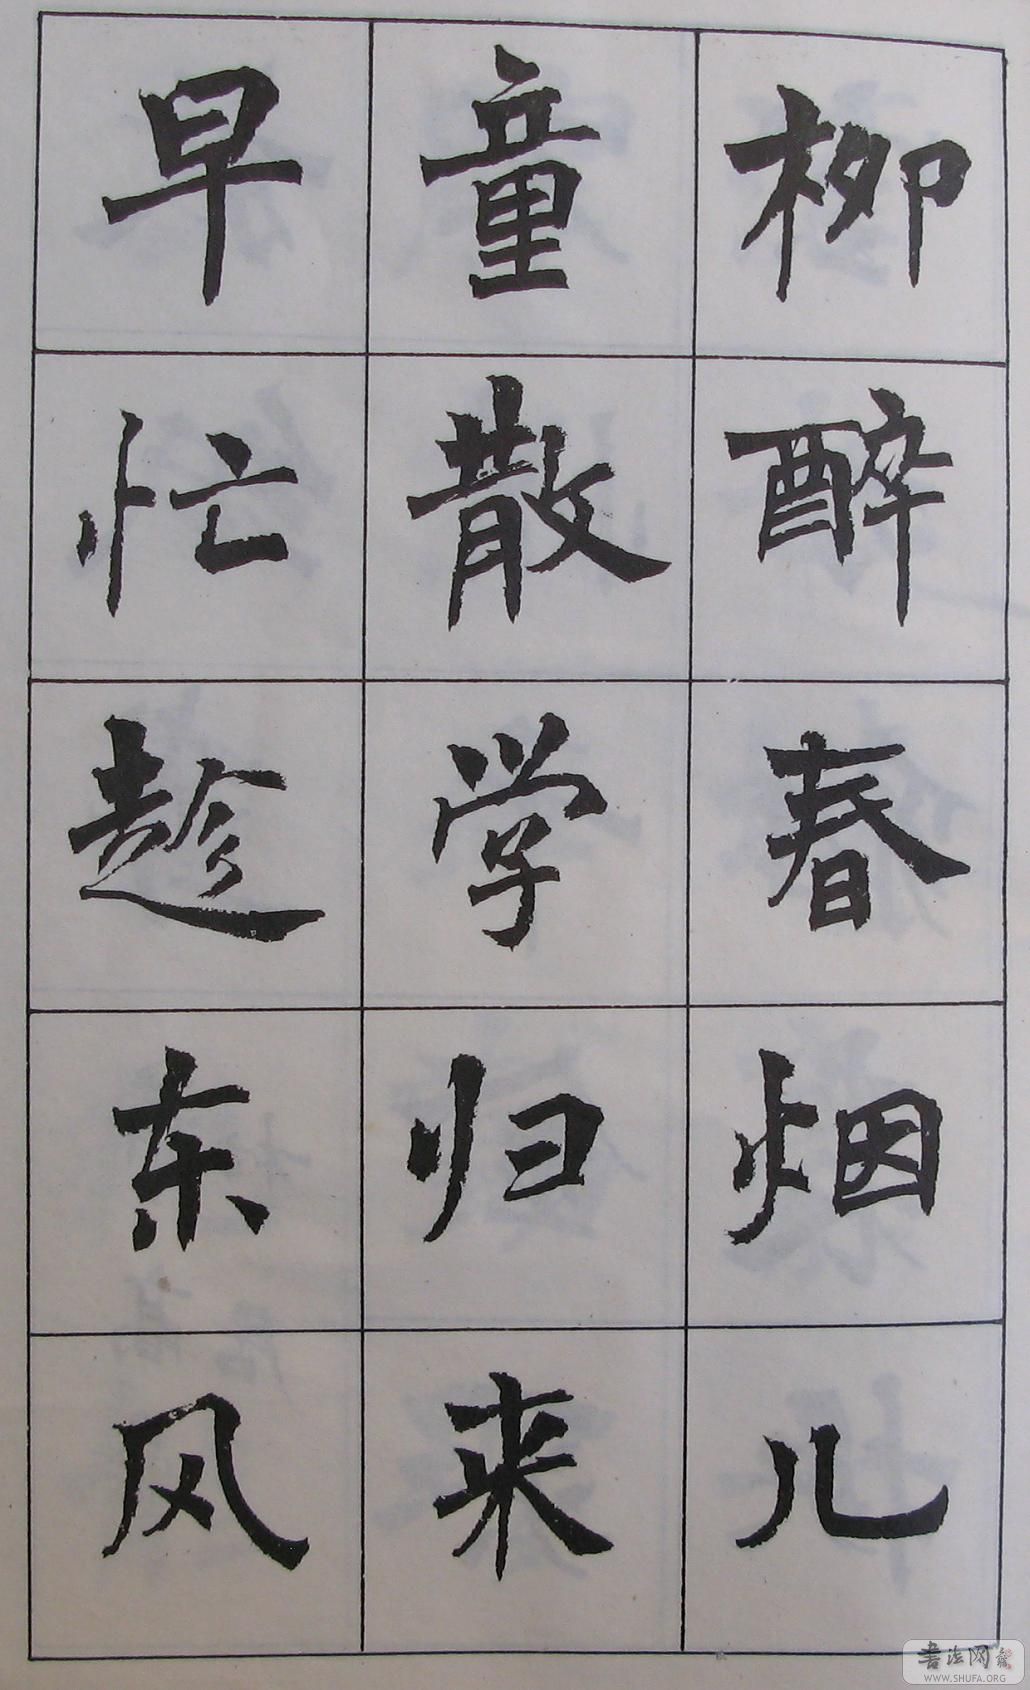 柳醉春烟儿
童散学归来
早忙趁东风
書法网
WWW.SHUFA.ORG